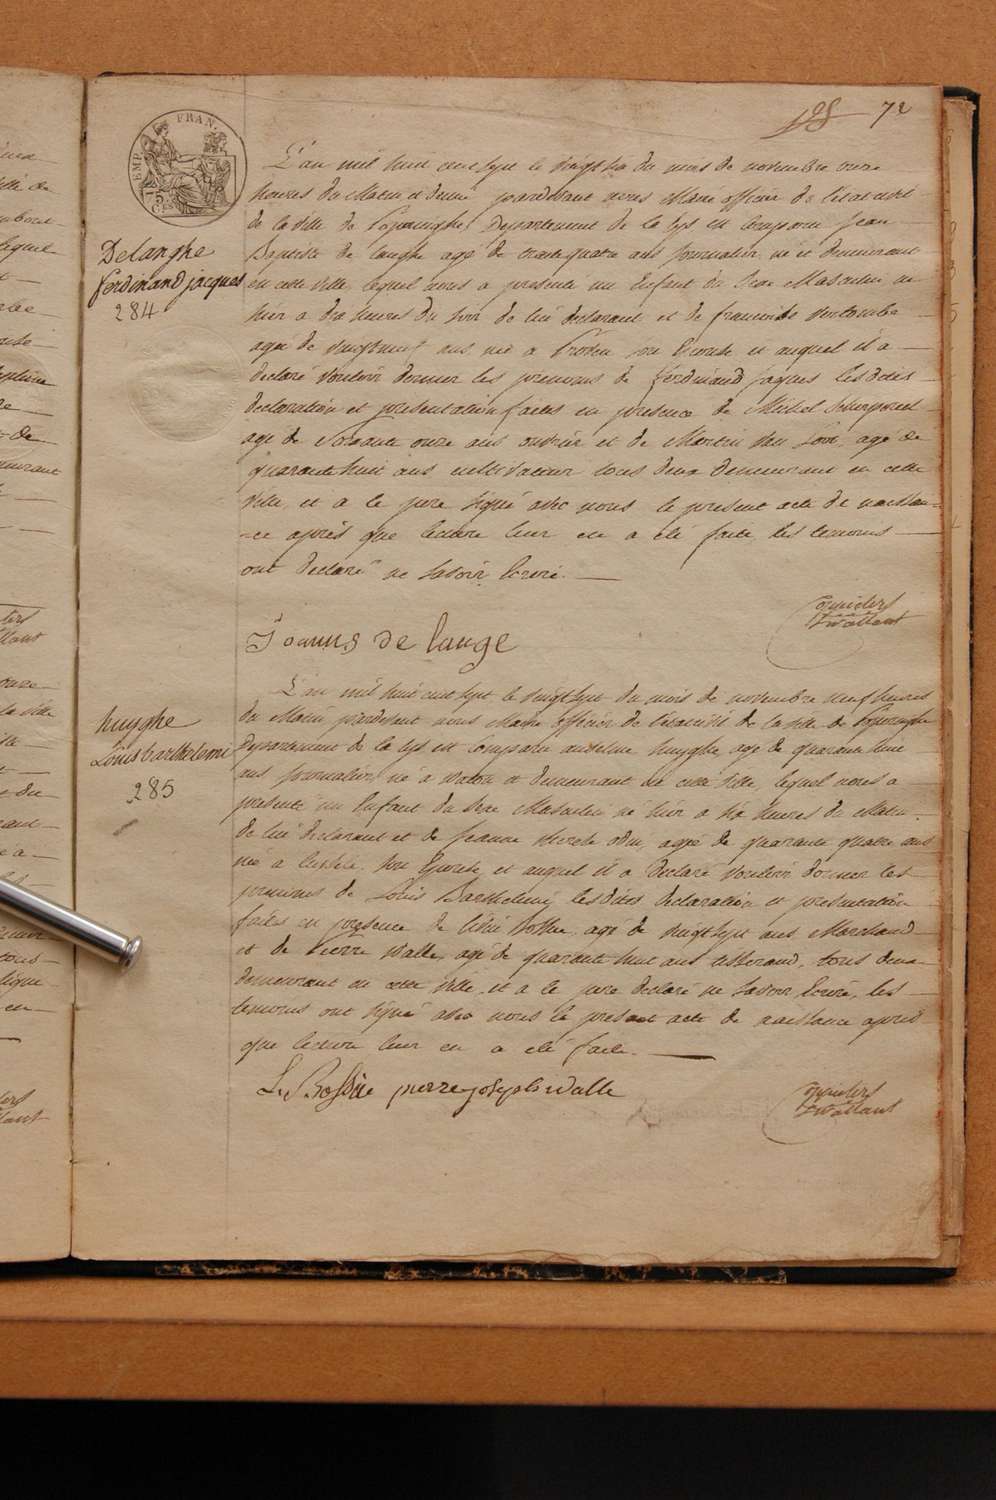 128 72
EMP. FRAN.
75
CES
L'an mil huit cent sept le vingt six du mois de novembre onze
heures du Matin et demie pardevant nous Maire officier de l'état civil
de la ville de Poperinghe Departement de la Lys est comparu Jean
Baptiste de langhe agé de trente quatre ans journalier né et demeurant
en cette ville, lequel nous a presenté un Enfant du Sexe Masculin né
hier a dix heures du soir de lui declarant et de
agée de vingt neuf ans née a Proven son Epouse et auquel il a
declaré vouloir donner les prenoms de ferdinand jaques les dites
declaration et presentation faites en presence de Michel
agé de soixante onze ans ouvrier et de Martin Van agé de
quarante huit ans cultivateur tous deux demeurant en cette
ville, et a le pere signé avec nous le present acte de naissan-
-ce après que lecture leur en a été faite les temoins
ont declaré ne savoir Ecrire.
Delanghe
ferdinand jacques
284
Joannis de lange
L'an mil huit cent sept le vingt sept du mois de novembre neuf heures
du Matin pardevant nous Maire officier de l'état civil de la ville de Poperinghe
Departement de la Lys est Comparu anselme huyghe, agé de quarante une
ans journalier, né a Watou et demeurant en cette ville, lequel nous a
presenté un Enfant du Sexe Masculin né hier a six heures du Matin,
de lui declarant et de jeanne agée de quarante quatre ans
née a son Epouse, et auquel il a declaré vouloir donner les
prenoms de Louis Barthelemi, les dites declaration et presentation
faites en presence de agé de vingt sept ans Marchand
et de Pierre Walle, agé de quarante huit ans tisserand, tous deux
demeurant en cette ville, et a le pere declaré ne savoir Ecrire, les
temoins ont signé avec nous le present acte de naissance après
que lecture leur en a été faite.
huyghe
Louis barthelemi
285
pierre joseph walle